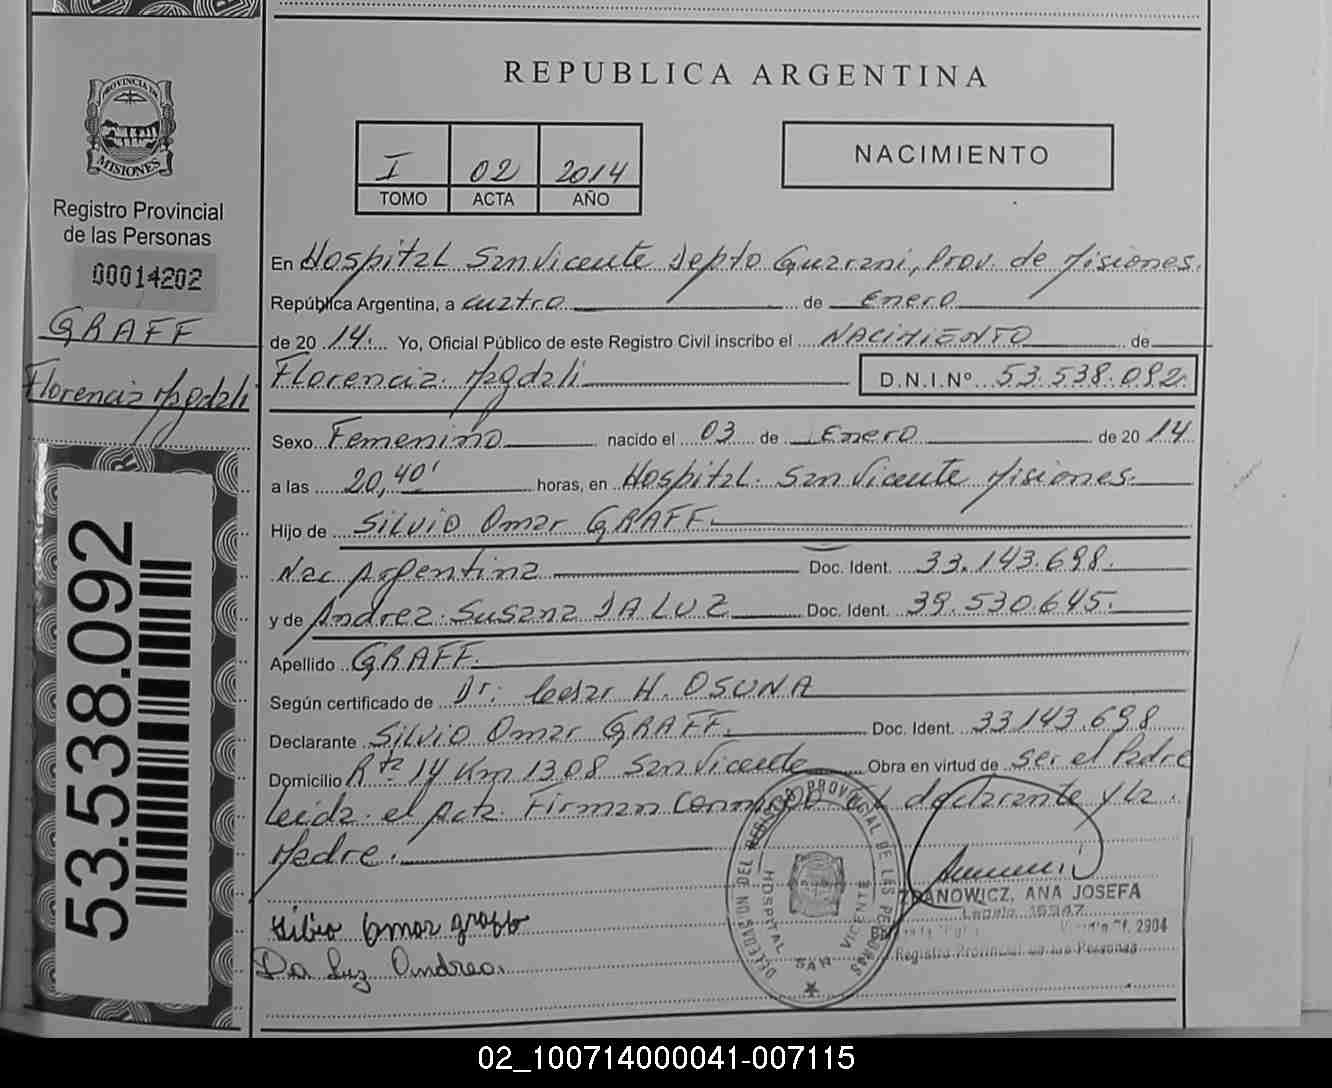 PROVINCIA DE
MISIONES
Registro Provincial
de las Personas
00014202
GRAFF
Florencia Magdali
53.538.092
REPUBLICA ARGENTINA
I 02 2014
TOMO ACTA AÑO
NACIMIENTO
En Hospital San Vicente Depto Guarani, Prov. de Misiones.
República Argentina, a cuatro de Enero
de 20 14. Yo, Oficial Público de este Registro Civil inscribo el NACIMIENTO de
Florencia Magdali D.N.I.Nº 53.538.092
Sexo Femenino nacido el 03 de Enero de 20 14
a las 20,40' horas, en Hospital San Vicente Misiones.
Hijo de Silvio Omar GRAFF.
Nac Argentina Doc. Ident. 33.143.698.
y de Andrea Susana DA LUZ Doc. Ident. 39.530.645.
Apellido GRAFF.
Según certificado de Dr. Cesar H. OSUNA
Declarante Silvio Omar GRAFF. Doc. Ident. 33143.698
Domicilio Rta 14 Km 1308 San Vicente Obra en virtud de ser el Padre
Leida el Acta Firman Conmigo el declarante y la
Madre.
DELEGACION DEL REGISTRO PROVINCIAL DE LAS PERSONAS
HOSPITAL SAN VICENTE
ZDANOWICZ, ANA JOSEFA
Of. 2904
Registro Provincial de las Personas
Silvio Omar graff
Da Luz Andrea.
02_100714000041-007115